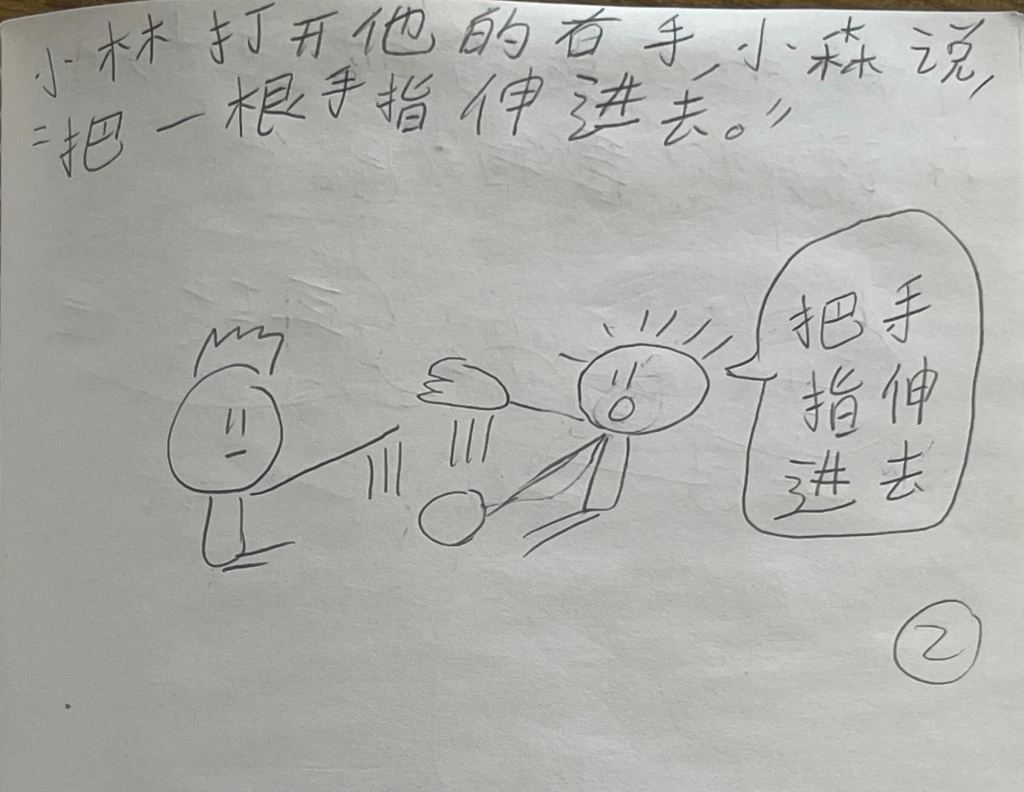 小林打开他的右手,小森说,
"把一根手指伸进去。"
把手
指伸
进去
2